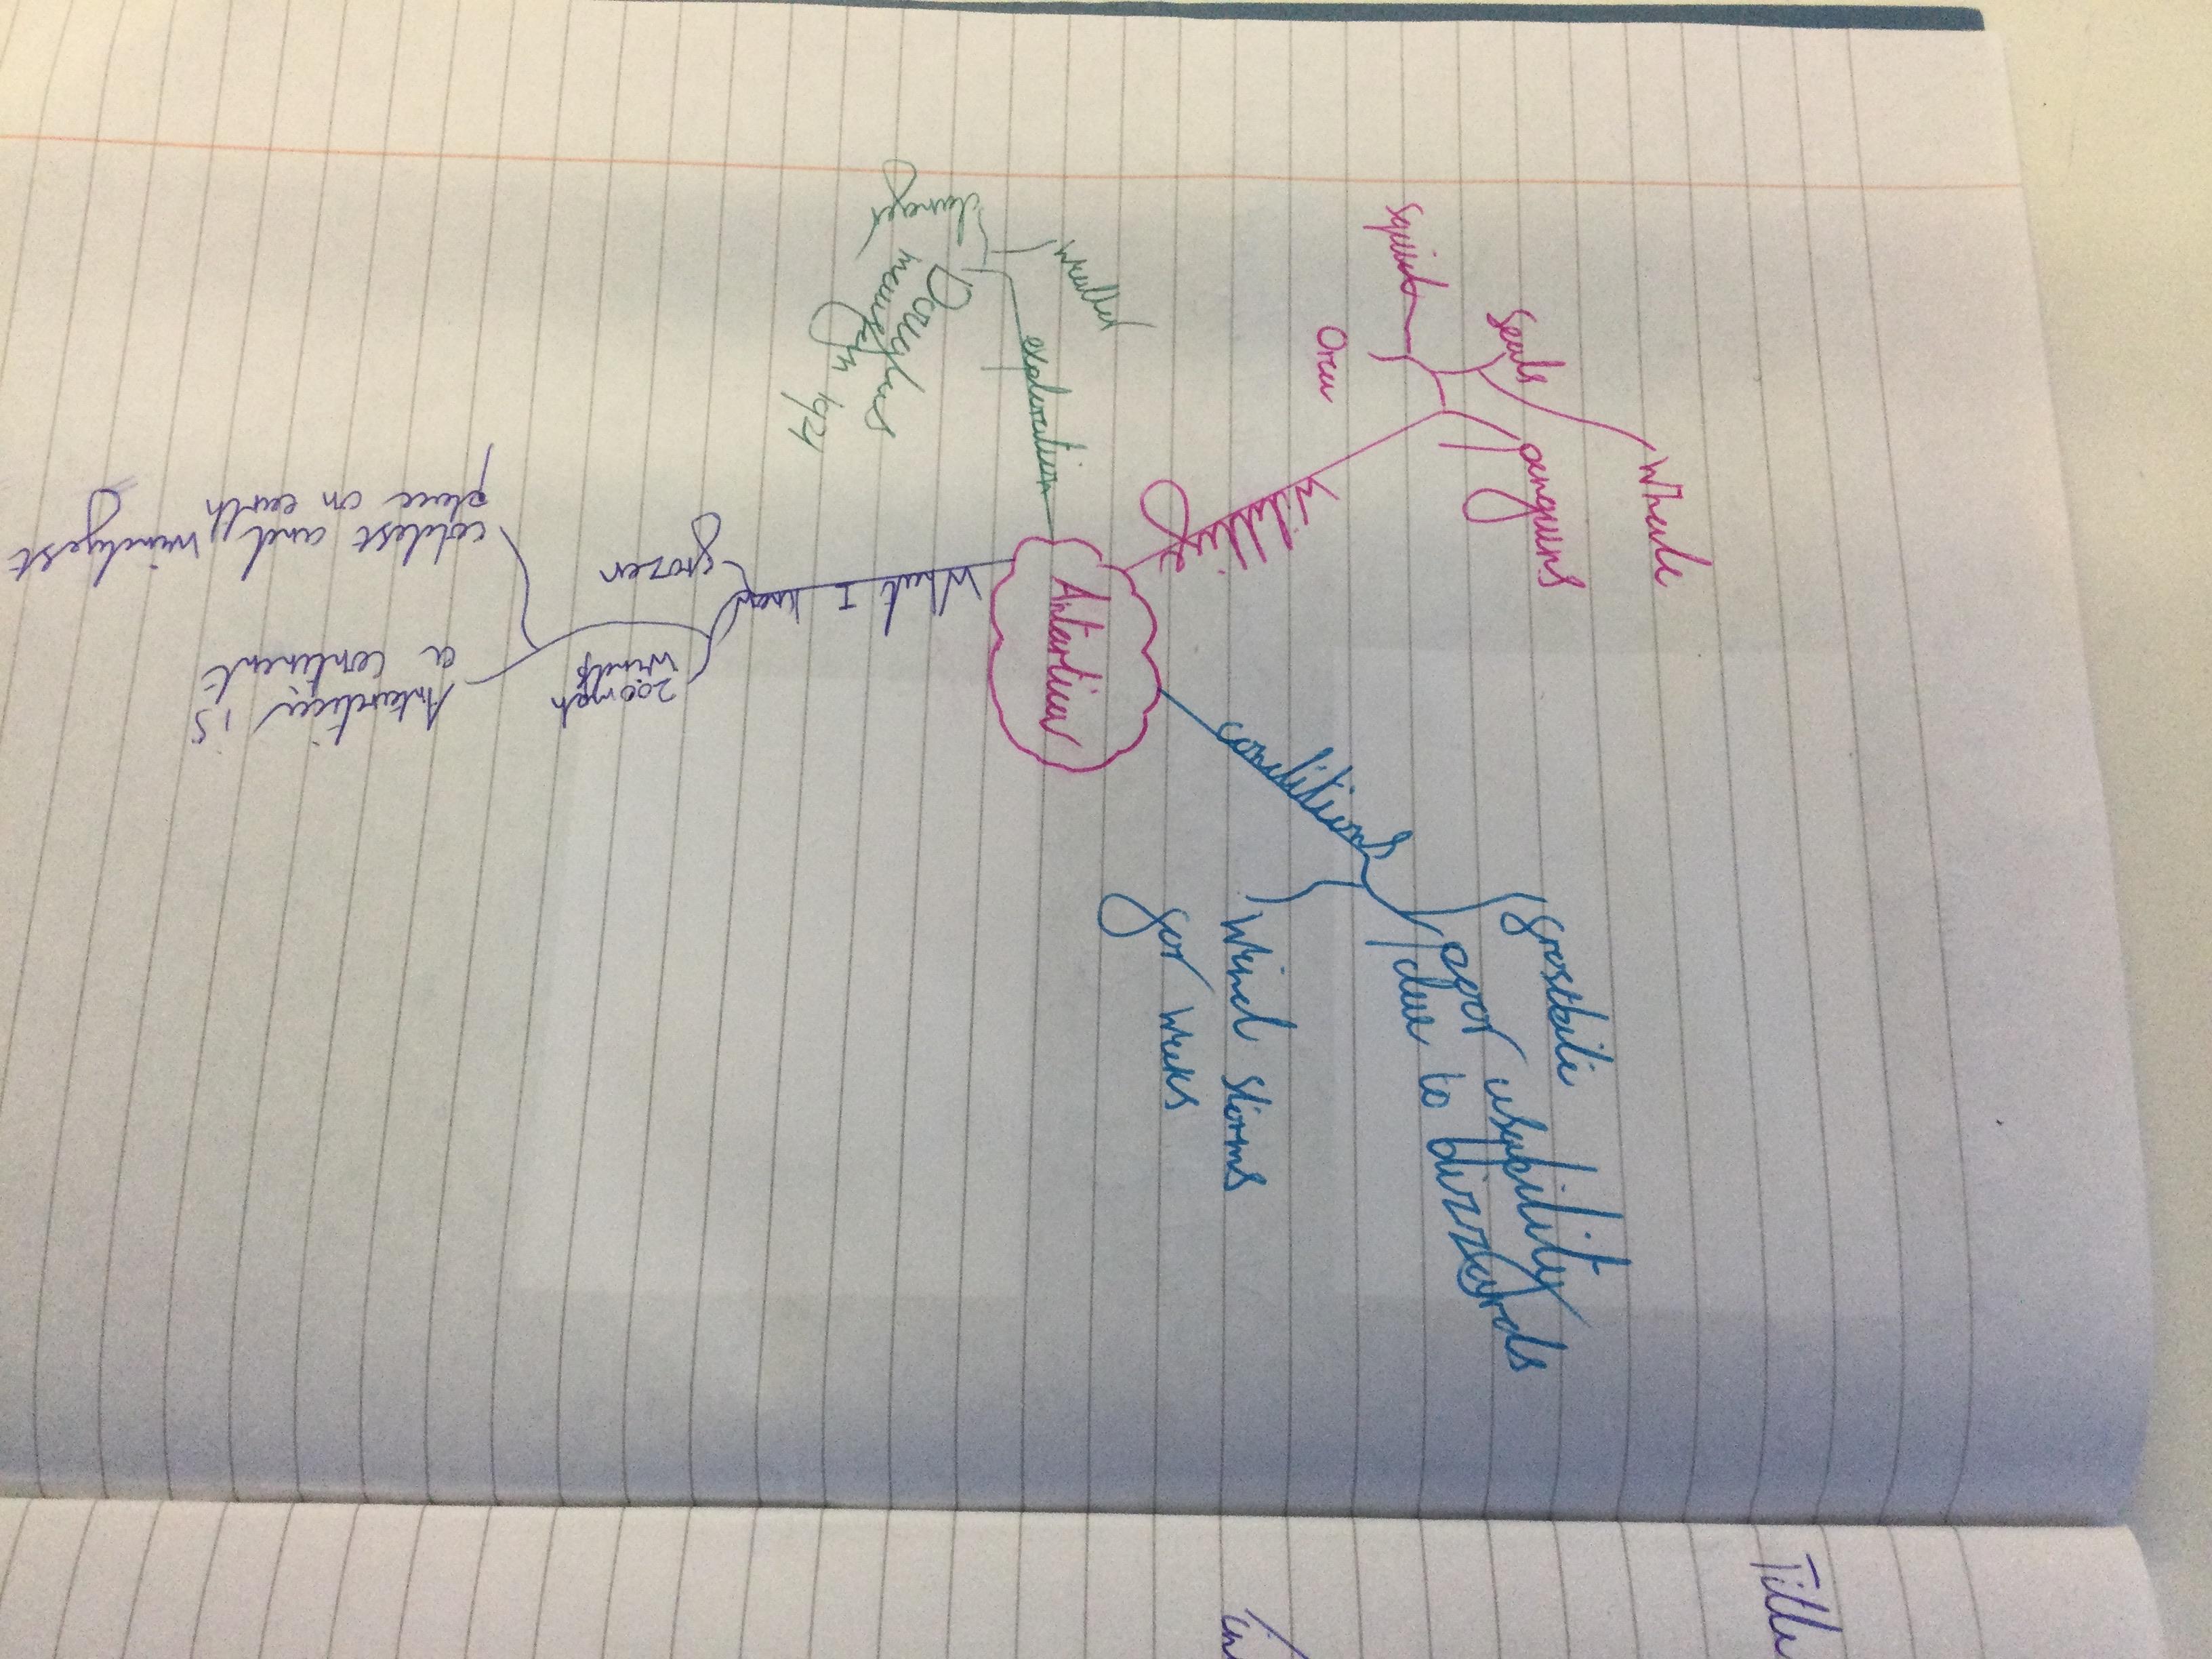 Antartica
Wildlife
squid
Orca
seals
penguins
Whale
conditions
frostbite
poor visability
due to blizzards
Wind storms
for weeks
exploration
danger
Douglas
What I know
frozen
200mph
winds
Antartica is
a continent
coldest and windyest
place on earth
Title
in